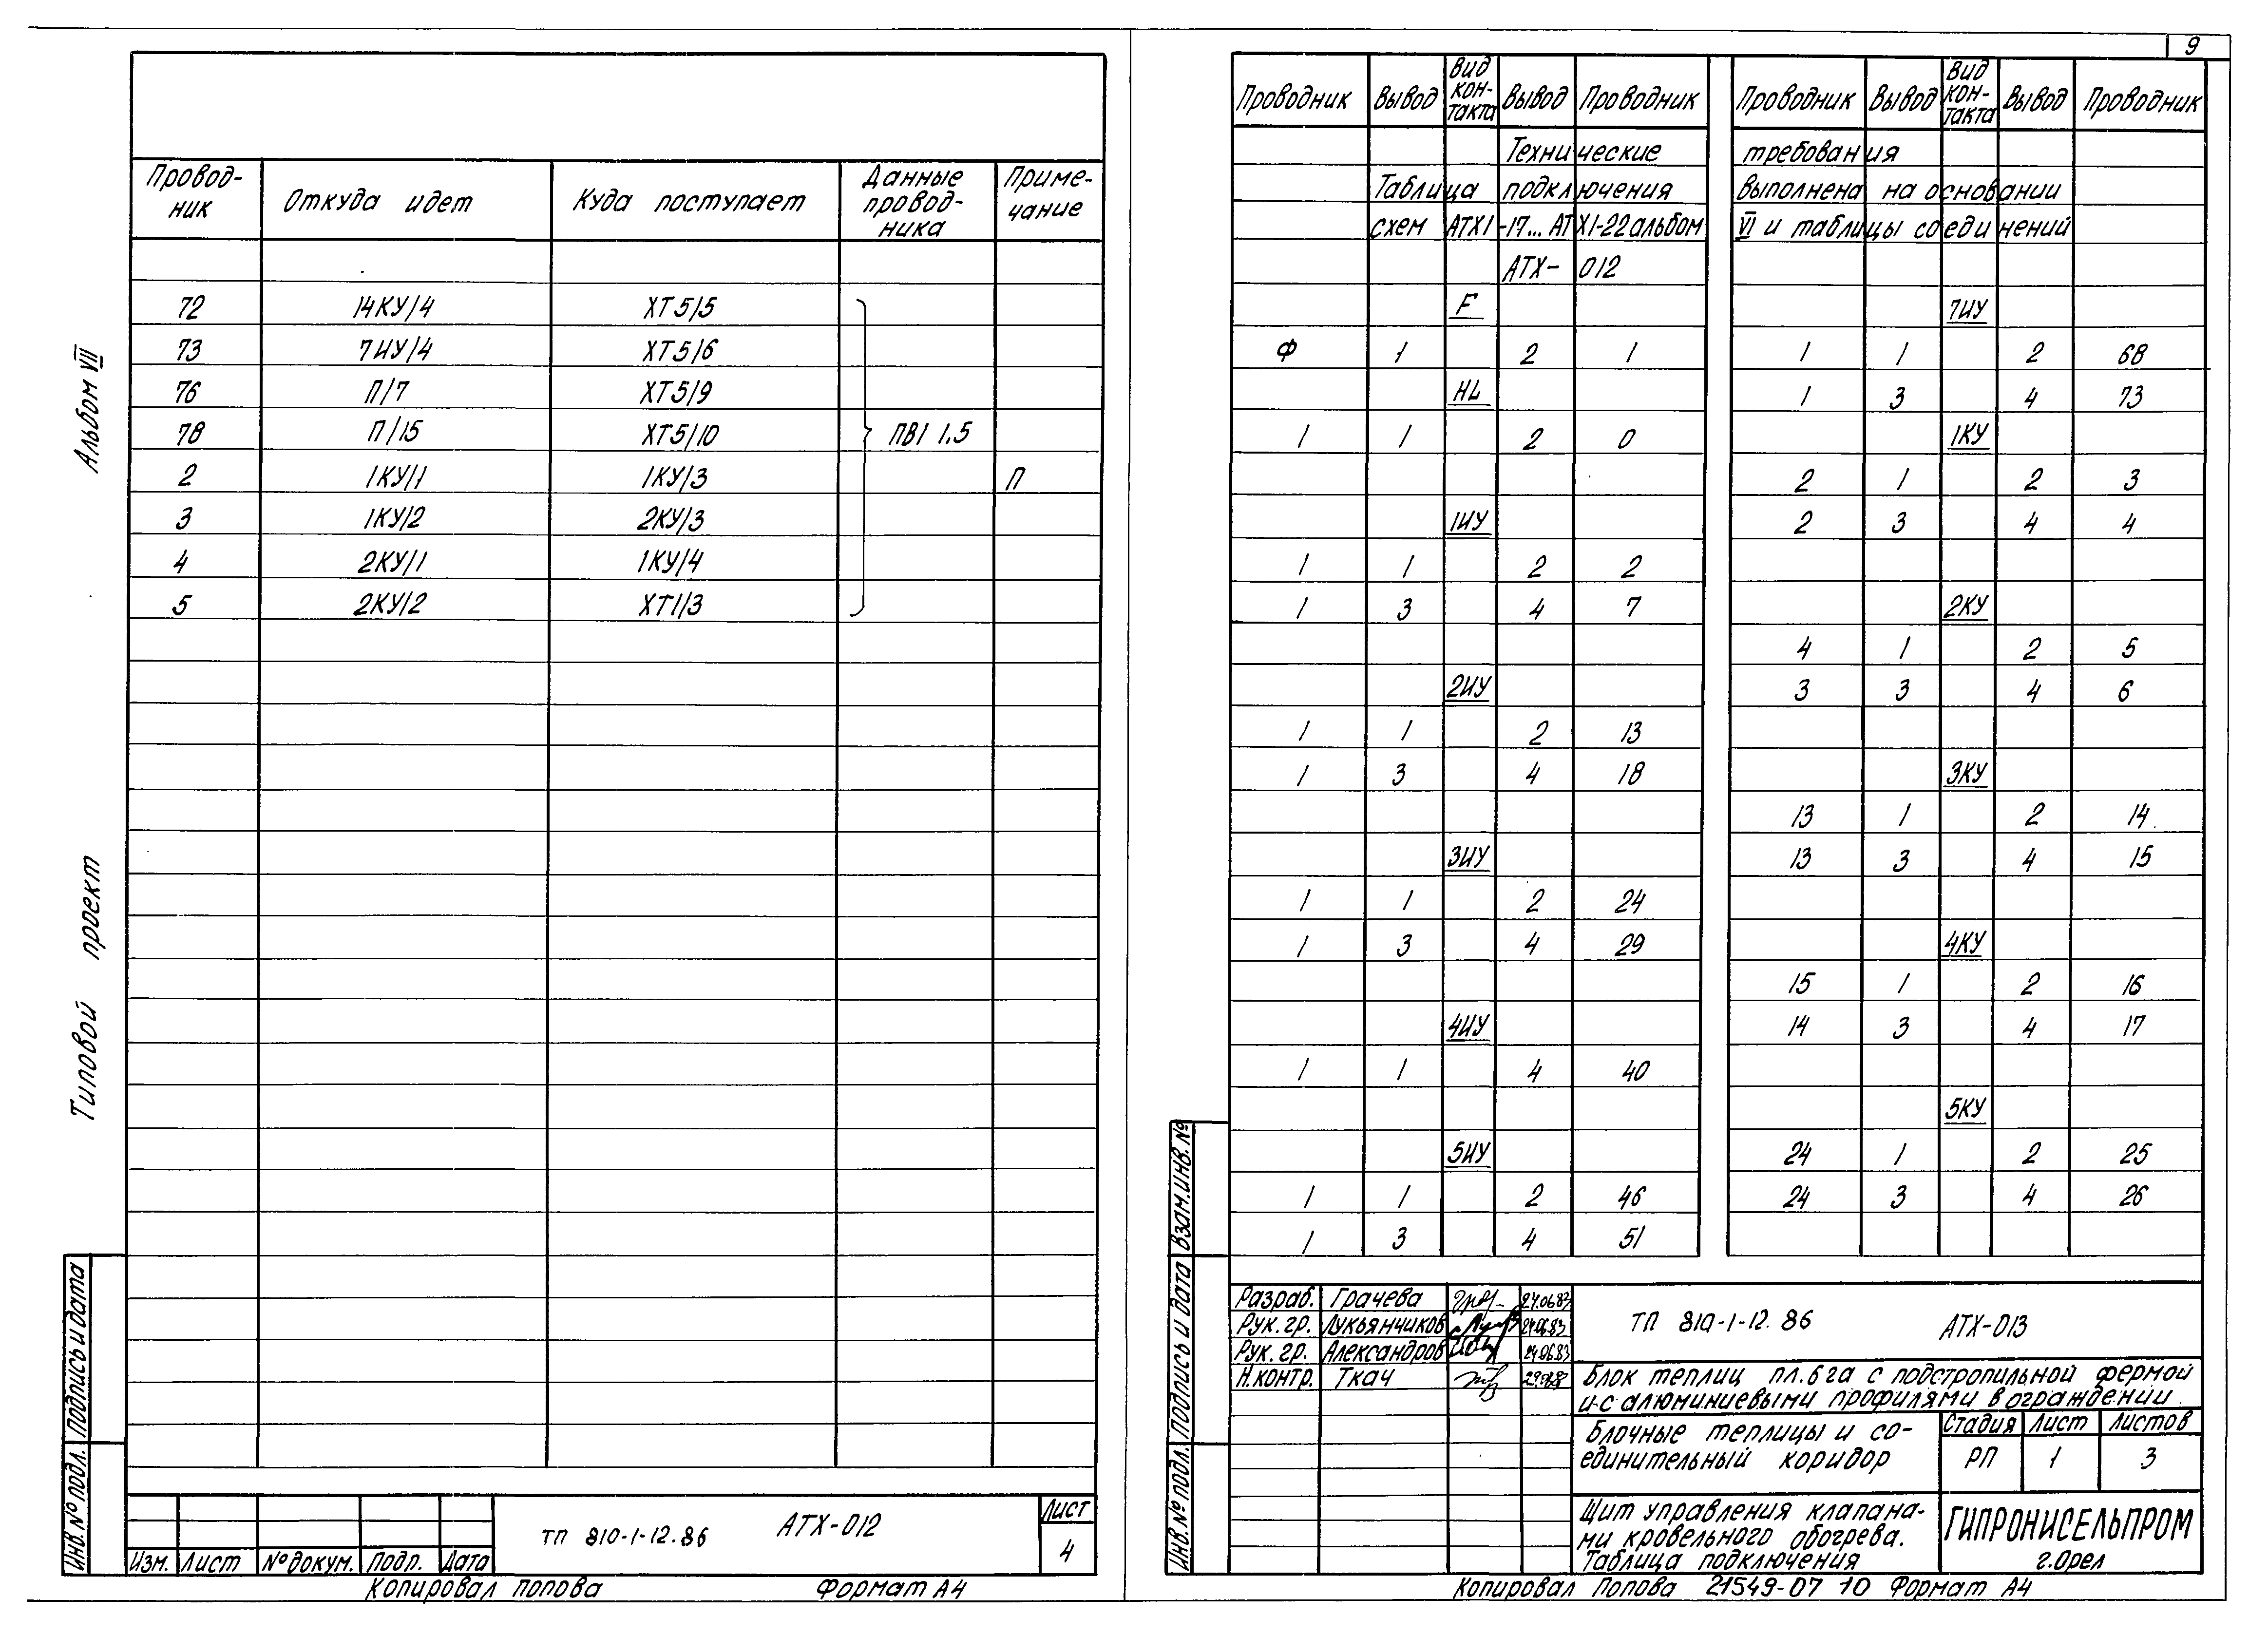 9
Альбом VII
Типовой проект
Провод-
ник
Откуда идет
Куда поступает
Данные
провод-
ника
Приме-
чание
72 14КУ/4 ХТ5/5
73 7ИУ/4 ХТ5/6
76 П/7 ХТ5/9
78 П/15 ХТ5/10 ПВ1 1.5
2 1КУ/1 1КУ/3 П
3 1КУ/2 2КУ/3
4 2КУ/1 1КУ/4
5 2КУ/2 ХТ1/3
Подпись и дата
Инв. № подл.
Изм. Лист № докум. Подп. Дата
ТП 810-1-12.86 АТХ-012
Лист
4
Копировал Попова Формат А4
Проводник Вывод Вид кон-такта Вывод Проводник
Проводник Вывод Вид кон-такта Вывод Проводник
Технические требования
Таблица подключения выполнена на основании
схем АТХ1-17...АТХ1-22 альбом VI и таблицы соединений
АТХ-012
F
Ф 1 2 1
HL
1 1 2 0
1ИУ
1 1 2 2
1 3 4 7
2ИУ
1 1 2 13
1 3 4 18
3ИУ
1 1 2 24
1 3 4 29
4ИУ
1 1 4 40
5ИУ
1 1 2 46
1 3 4 51
7ИУ
1 1 2 68
1 3 4 73
1КУ
2 1 2 3
2 3 4 4
2КУ
4 1 2 5
3 3 4 6
3КУ
13 1 2 14
13 3 4 15
4КУ
15 1 2 16
14 3 4 17
5КУ
24 1 2 25
24 3 4 26
Взам. инв. №
Подпись и дата
Инв. № подл.
Разраб. Грачева 24.06.83
Рук. гр. Лукьянчиков 24.06.83
Рук. гр. Александров 24.06.83
Н. контр. Ткач
ТП 810-1-12.86 АТХ-013
Блок теплиц пл. 6 га с подстропильной фермой
и с алюминиевыми профилями в ограждении
Блочные теплицы и со-
единительный коридор
Стадия Лист Листов
РП 1 3
Щит управления клапана-
ми кровельного обогрева.
Таблица подключения
ГИПРОНИСЕЛЬПРОМ
г. Орел
Копировал Попова 21549-07 10 Формат А4